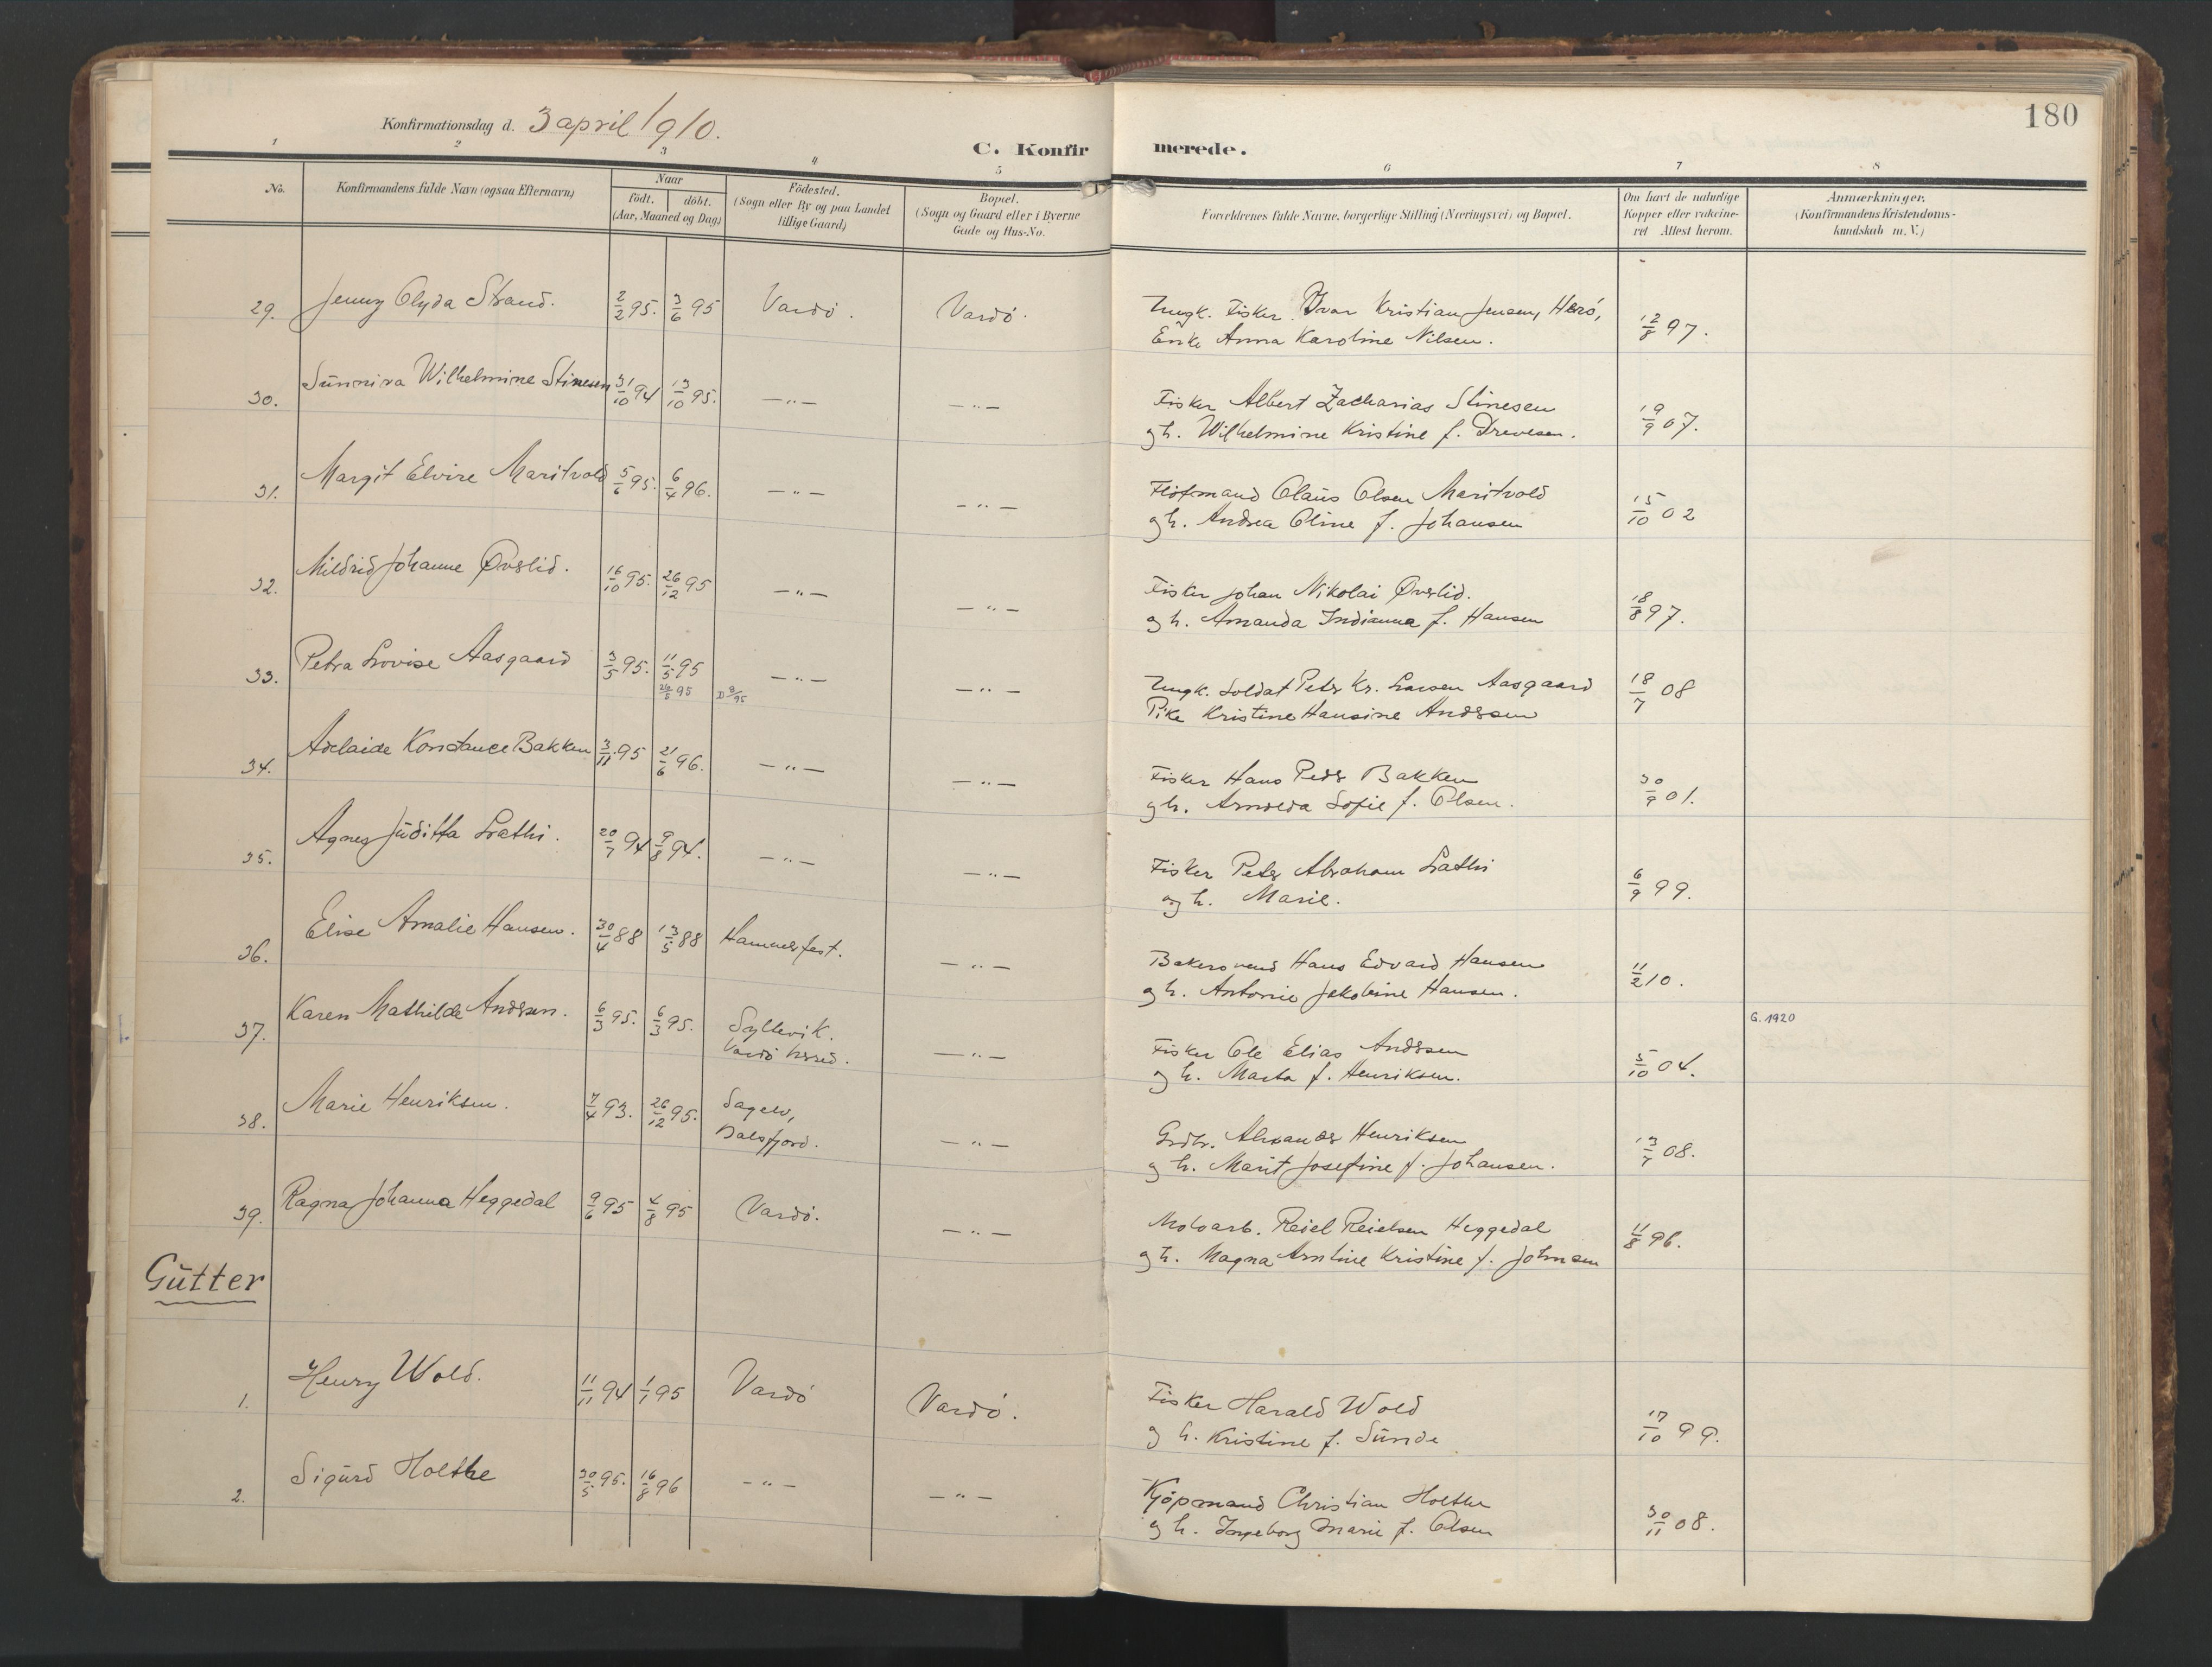 180
Konfirmationsdag d. 3 april 1910.
C. Konfirmerede.
1 2 3 4 5 6 7 8
No.
Konfirmandens fulde Navn (ogsaa Efternavn)
Naar
födt. döbt.
(Aar, Maaned og Dag)
Födested.
(Sogn eller By og paa Landet
tillige Gaard)
Bopæl.
(Sogn og Gaard eller i Byerne
Gade og Hus-No.
Forældrenes fulde Navne, borgerlige Stilling (Næringsvei) og Bopæl.
Om havt de naturlige
Kopper eller vakcine-
ret Attest herom.
Anmærkninger.
(Konfirmandens Kristendoms-
kundskab m. V.)
29. Jenny Olyda Strand. 2/2 95. 3/6 95 Vardö. Vardö.
Ungk. Fisker Ivar Kristian Jensen, Herö, 12/8 97.
Enke Anna Karoline Nilsen.
30. Sunniva Wilhelmine Stinesen 31/10 94 13/10 95. —"— —"—
Fisker Albert Zacharias Stinesen 19/9 07.
og h. Wilhelmine Kristine f. Drevesen.
31. Margit Elvire Maritvold 5/6 95. 6/4 96. —"— —"—
Flötmand Olaus Olsen Maritvold 15/10 02
og h. Andrea Oline f. Johansen
32. Mildrid Johanne Øvslid. 16/10 95. 26/12 95 —"— —"—
Fisker Johan Nikolai Øvslid. 18/8 97.
og h. Amanda Indianna f. Hansen
33. Petra Lovise Aasgaard 3/5 95. 11/5 95 —"— —"—
26/5 95
Ungk. Soldat Peter Kr. Larsen Aasgaard 18/7 08
Pike Kristine Hansine Anderssen
34. Adelaide Konstance Bakken 3/11 95 21/6 96. —"— —"—
Fisker Hans Peder Bakken 30/9 01.
og h. Sofie f. Olsen.
35. Agnes Juditta Lathi. 20/7 94 9/8 94. —"— —"—
Fisker Peter Abraham Lathi 6/9 99.
og h. Marie.
36. Elise Amalie Hansen. 30/4 88 13/5 88 Hammerfest. —"—
Bakersvend Hans Edvard Hansen 11/2 10.
og h. Antonie Jakobine Hansen.
37. Karen Mathilde Anderssen. 6/3 95. 6/3 95. Syltevik. —"—
Vardö herred.
Fisker Ole Elias Anderssen 5/10 04. G. 1920
og h. Marta f. Henriksen.
38. Marie Henriksen. 7/4 93. 26/12 95. Sagelv, —"—
Balsfjord.
Grdbr. Alexander Henriksen 13/7 08.
og h. Marit Josefine f. Johansen.
39. Ragna Johanna Heggedal 9/6 95 4/8 95 Vardö. —"—
Moloarb. Reiel Reielsen Heggedal 11/8 96.
og h. Magna Arntine Kristine f. Johnsen
Gutter
1. Henry Wold. 11/11 94 1/1 95 Vardö Vardö.
Fisker Harald Wold 17/10 99.
og h. Kristine f. Sunde
2. Sigurd Holthe 30/5 95. 16/8 96 —"— —"—
Kjöpmand Christian Holthe 30/11 08.
og h. Ingeborg Marie f. Olsen